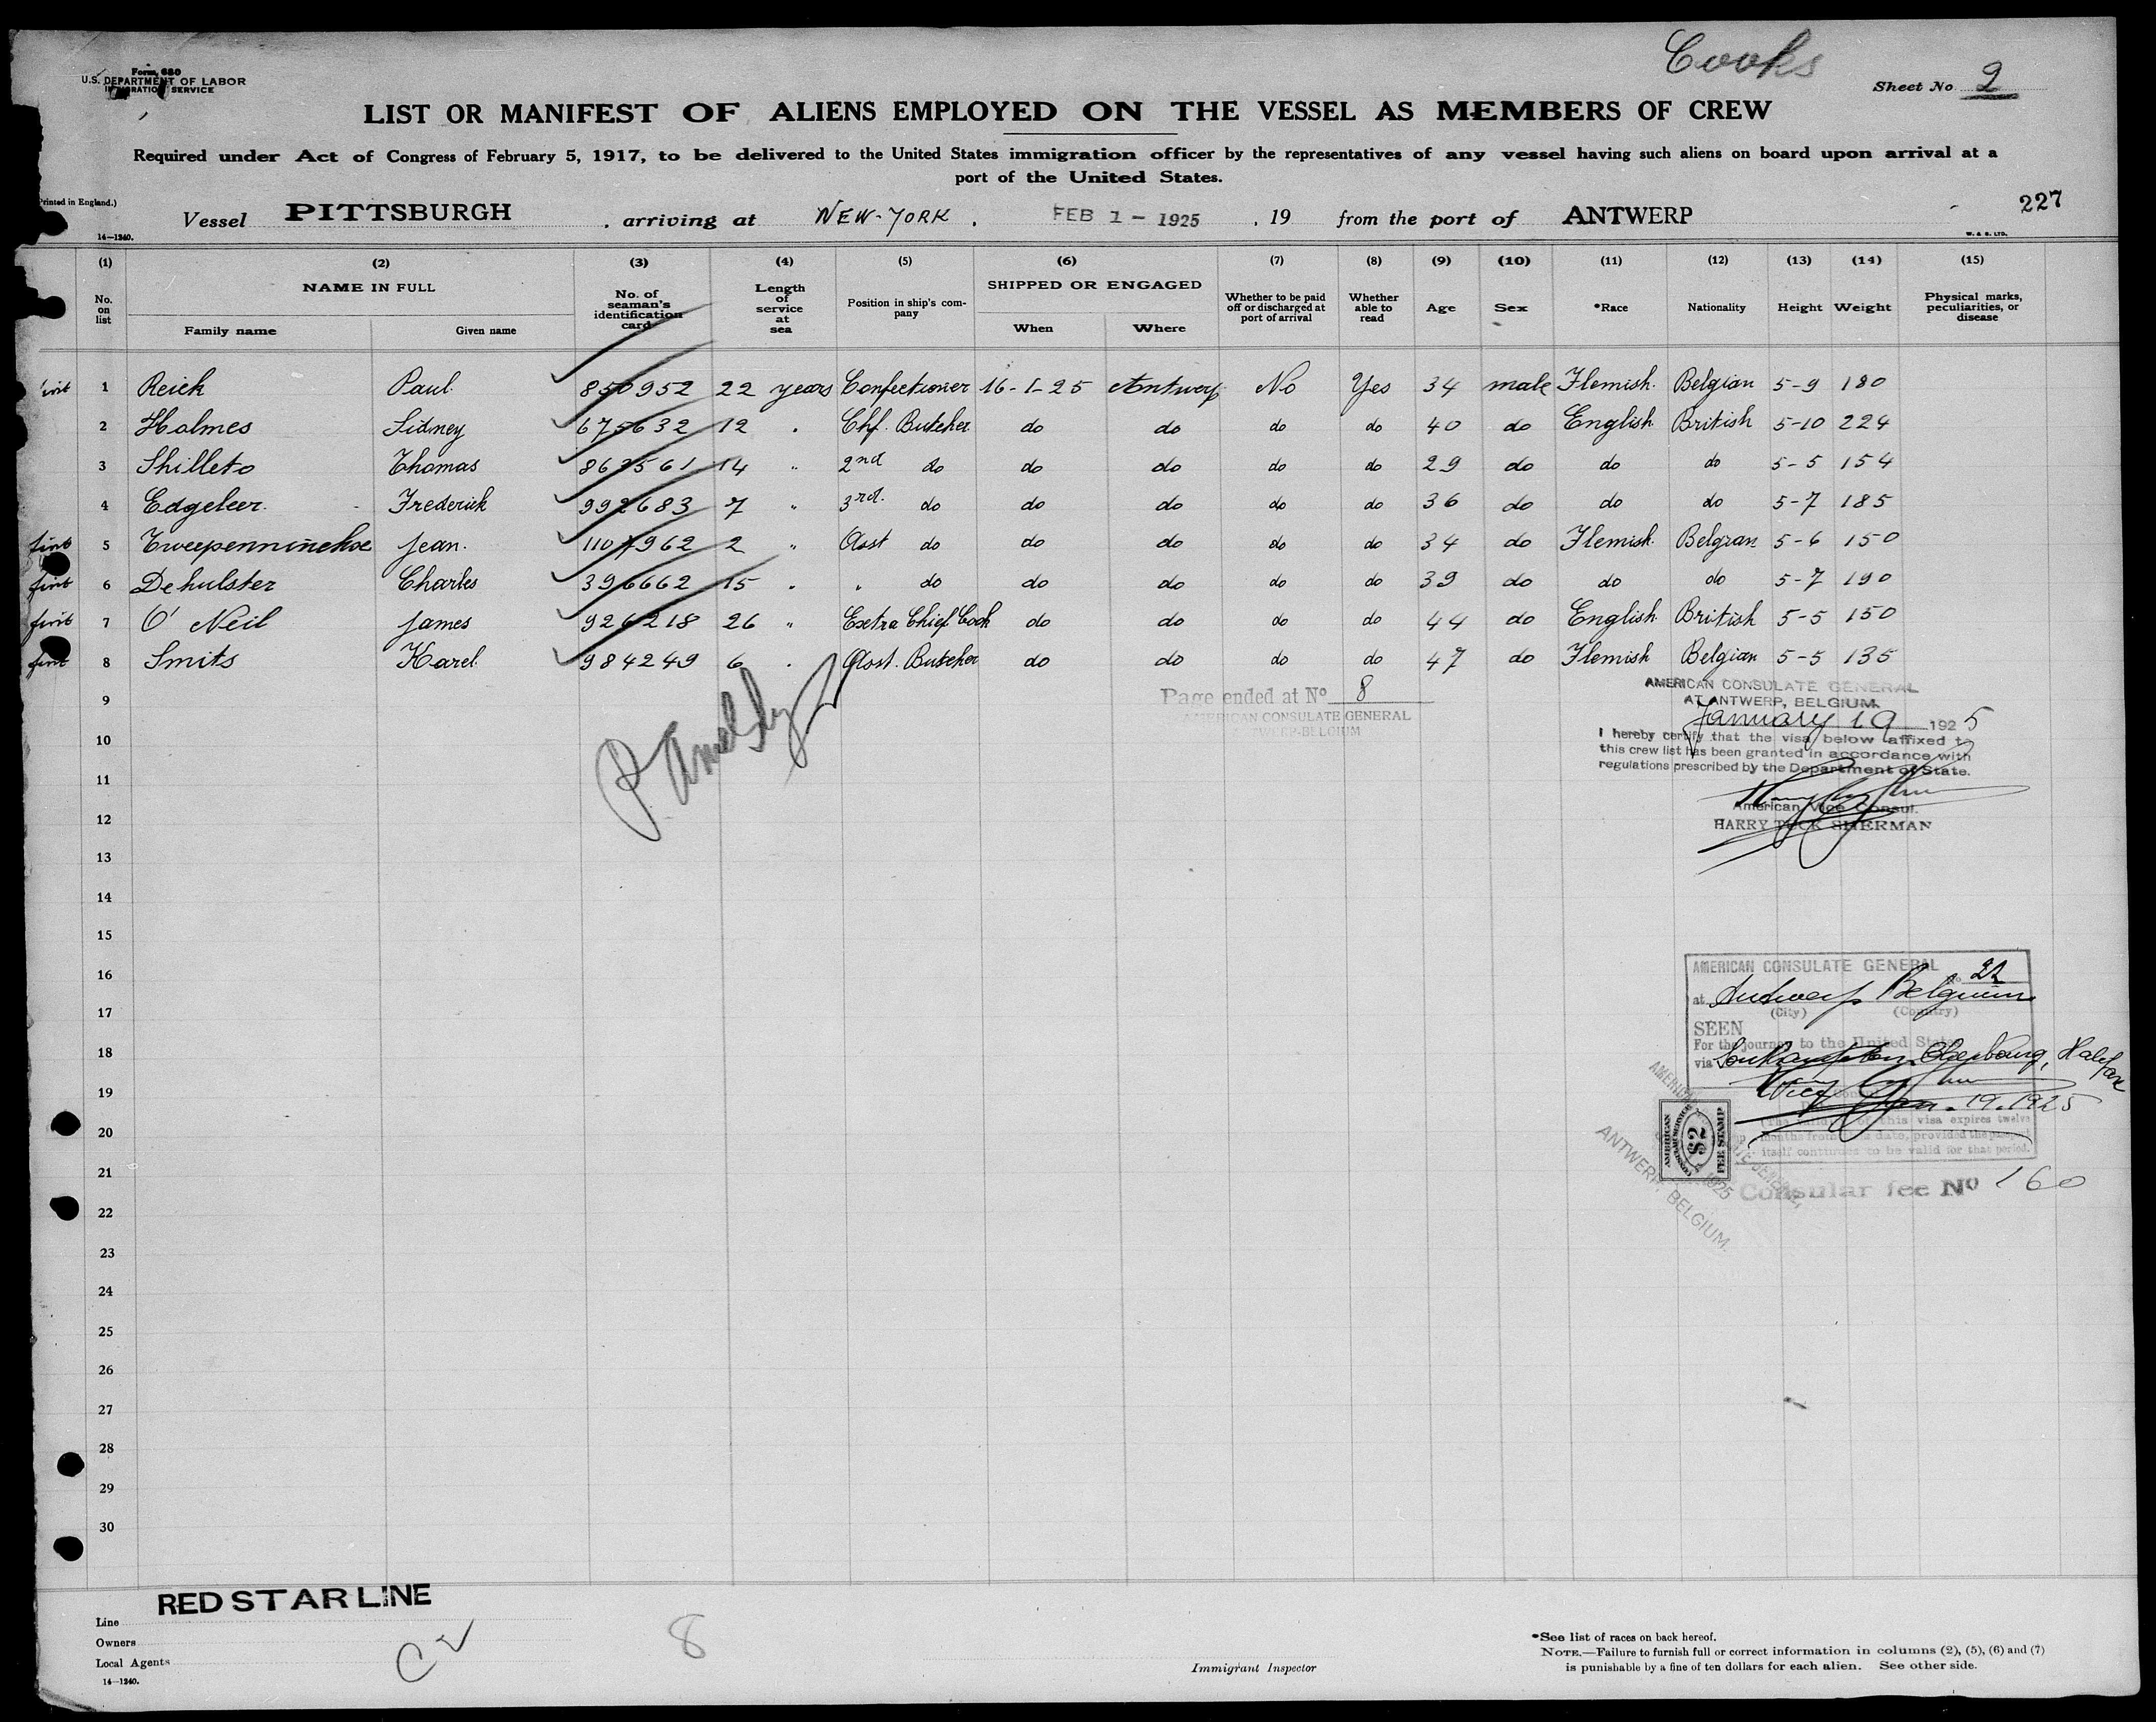 Cooks
Form 680
U.S. DEPARTMENT OF LABOR
IMMIGRATION SERVICE
Sheet No 2
LIST OR MANIFEST OF ALIENS EMPLOYED ON THE VESSEL AS MEMBERS OF CREW
Required under Act of Congress of February 5, 1917, to be delivered to the United States immigration officer by the representatives of any vessel having such aliens on board upon arrival at a
port of the United States.
Printed in England.)
227
Vessel PITTSBURGH , arriving at NEW-YORK , FEB 1 - 1925 , 19 from the port of ANTWERP
14—1240.
W. & S. LTD.
(1) (2) (3) (4) (5) (6) (7) (8) (9) (10) (11) (12) (13) (14) (15)
No. on list NAME IN FULL Family name Given name No. of seaman's identification card Length of service at sea Position in ship's company SHIPPED OR ENGAGED When Where Whether to be paid off or discharged at port of arrival Whether able to read Age Sex *Race Nationality Height Weight Physical marks, peculiarities, or disease
1 Reich Paul 850952 22 years Confectioner 16-1-25 Antwerp No Yes 34 male Flemish Belgian 5-9 180
2 Holmes Sidney 675632 12 " Chf. Butcher do do do do 40 do English British 5-10 224
3 Shilleto Thomas 863561 14 " 2nd do do do do do 29 do do do 5-5 154
4 Edgeleer Frederick 992683 7 " 3rd. do do do do do 36 do do do 5-7 185
5 Jean. 2 " Asst do do do do do 34 do Flemish Belgian 5-6 150
6 Dehulster Charles 396662 15 " " do do do do do 39 do do do 5-7 190
7 O' Neil James 926218 26 " Extra Chief Cook do do do do 44 do English British 5-5 150
8 Smits Karel 984249 6 " Asst. Butcher do do do do 47 do Flemish Belgian 5-5 135
9
Page ended at No 8
AMERICAN CONSULATE GENERAL
ANTWERP-BELGIUM
AMERICAN CONSULATE GENERAL
AT ANTWERP, BELGIUM.
January 19 1925
I hereby certify that the visa below affixed to
this crew list has been granted in accordance with
regulations prescribed by the Department of State.
American Vice Consul.
HARRY TUCK SHERMAN
10
11
12
13
14
15
16
17
18
19
20
21
22
23
24
25
26
27
28
29
30
AMERICAN CONSULATE GENERAL
No 22
at Antwerp Belgium
(City) (Country)
SEEN
For the journey to the United States
via Southampton, Cherbourg, Halifax
Jan. 19. 1925
this visa expires twelve
months from date, provided the passport
itself continues to be valid for that period.
AMERICAN CONSULAR SERVICE $2 FEE STAMP
ANTWERP, BELGIUM.
Consular fee No 160
RED STAR LINE
Line
Owners
Local Agents
14—1240.
8
Immigrant Inspector
*See list of races on back hereof.
NOTE.—Failure to furnish full or correct information in columns (2), (5), (6) and (7)
is punishable by a fine of ten dollars for each alien. See other side.